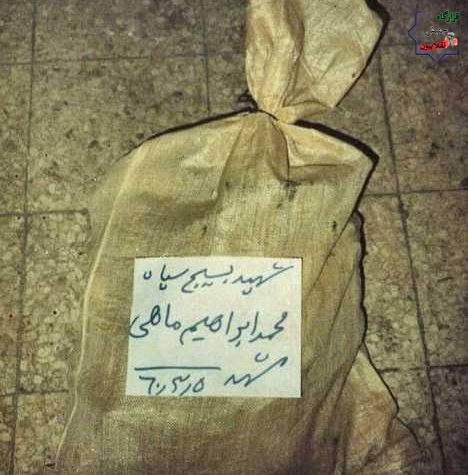 قرارگاه
شهید بسیج سپاه
محمد ابراهیم ماهی
مشهد ۶۰٫۳٫۵